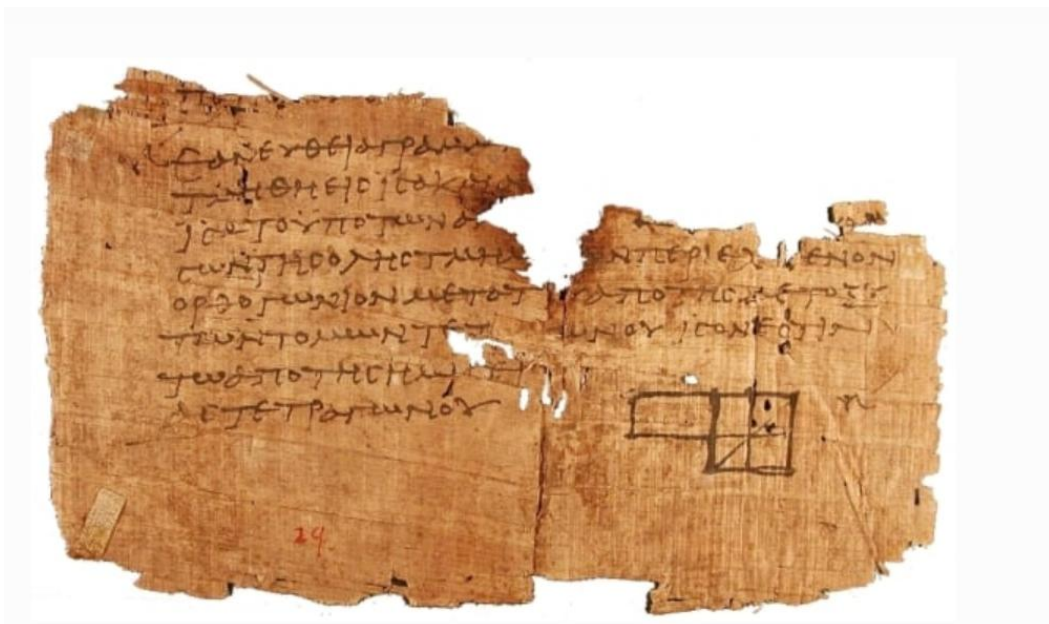 ΕΑΝ ΕΥΘΕΙΑ ΓΡΑΜΜ
ΤΜΗΘΗ ΕΙϹ ΙϹΑ ΚΑΙ
ΙϹΑ ΤΟ ΥΠΟ ΤΩΝ Α
ϹΩΝ ΤΗϹ ΟΛΗϹ ΤΜΗΜ Ν ΠΕΡΙΕΧΟΜΕΝΟΝ
ΟΡΘΟΓΩΝΙΟΝ ΜΕΤΑ Τ ΑΠΟ ΤΗϹ ΜΕΤΟΞΥ
ΤΩΝ ΤΟΜΩΝ ΤΕΤ ΩΝΟΥ ΙϹΟΝ ΕϹΤΙΝ
ΤΩ ΑΠΟ ΤΗϹ ΗΜΙϹΕΙ
ΑϹ ΤΕΤΡΑΓΩΝΟΥ
29